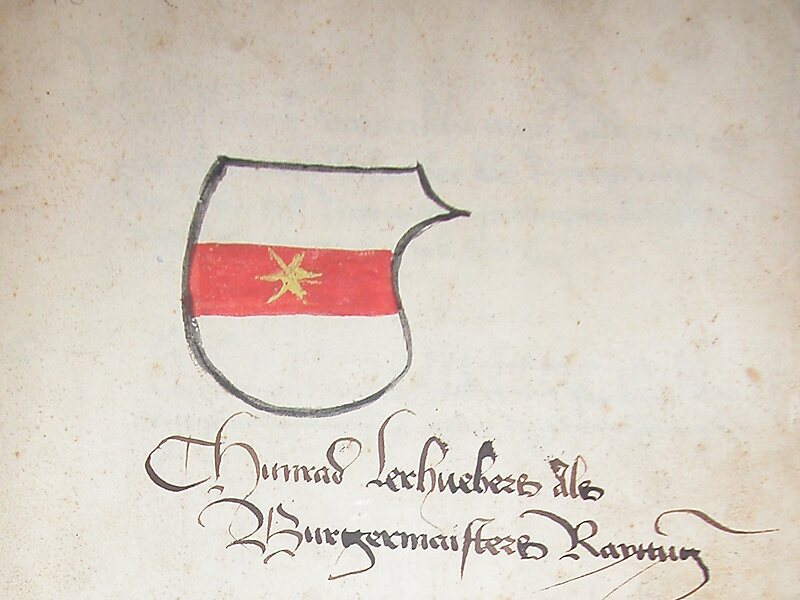 Chunrad Lerhuebers als
Burgermaisters Rayttung